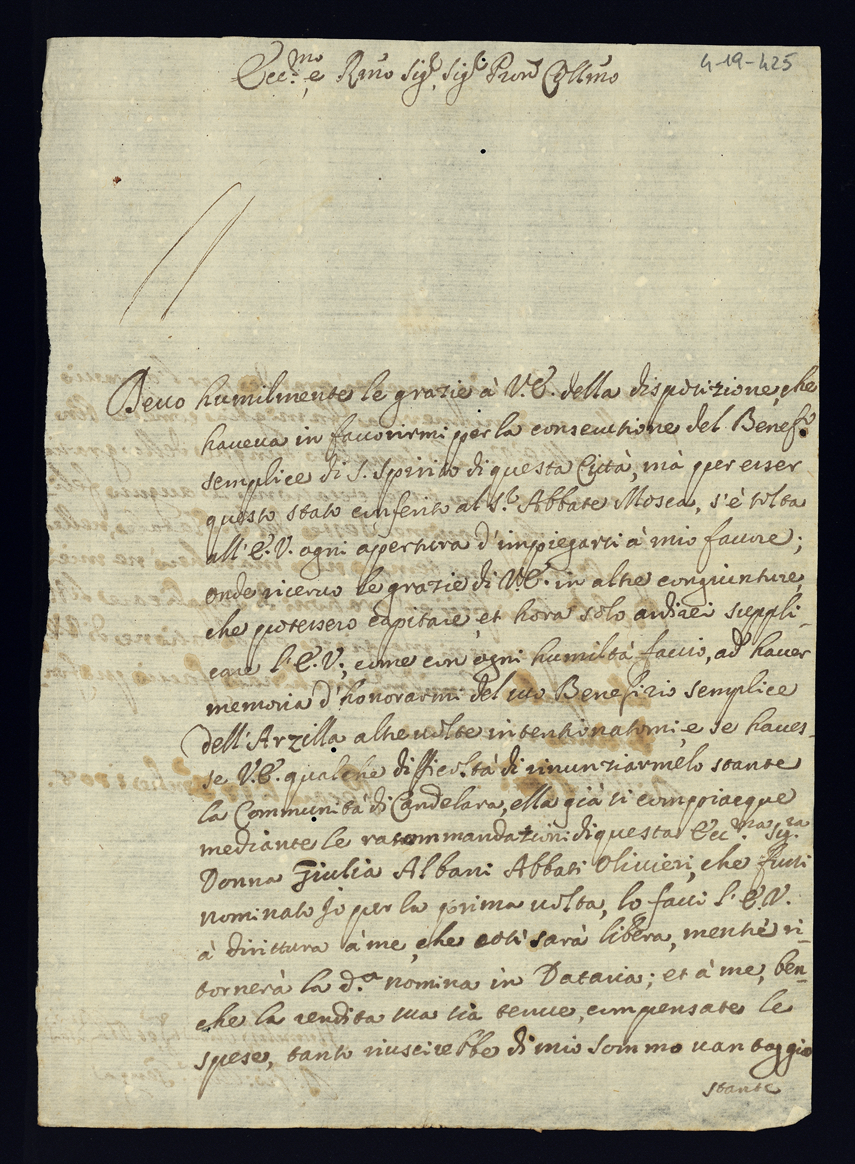 Ecc.mo e Rmo Sig.r Sig.r Pron Collmo
4-19-425
Devo humilmente le grazie à V.E. della dispositione, che
haveva in favorirmi per la consecutione del Benef.o
semplice di S. Spirito di questa Città, mà per esser
questo stato conferito al S.r Abbate Mosca, s'è tolta
all'E.V. ogni apertura d'impiegarsi à mio favore;
onde riservo le grazie di V.E. in altre congiunture,
che potessero capitare, et hora solo ardirei suppli-
care l'E.V., come con ogni humiltà faccio, ad haver
memoria d'honorarmi del suo Benefizio semplice
dell'Arzilla altre volte intentionatomi, e se haves-
se V.E. qualche difficoltà di rinunziarmelo stante
la Communità di Candelara, ella già si compiacque
mediante le racommandationi di questa Ecc.ma Sig.ra
Donna Giulia Albani Abbati Olivieri, che fussi
nominato Io per la prima volta, lo facci l'E.V.
à dirittura à me, che così sarà libera, mentre ri-
tornerà la d.a nomina in Dataria; et à me, ben-
che la rendita sua sia tenue, compensate le
spese, tanto riuscirebbe di mio sommo vantaggio
stante